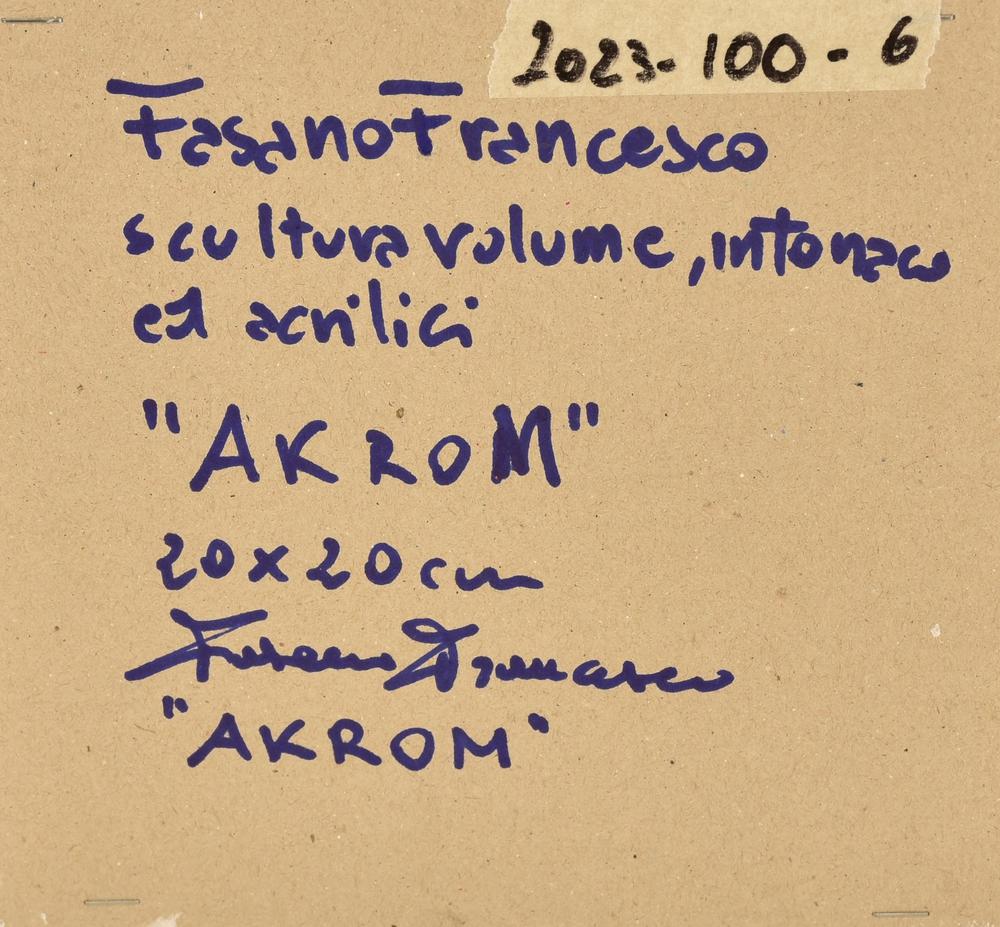 2023-100-6
Fasano Francesco
scultura volume, intonaco
ed acrilici
"AKROM"
20x20cm
Fasano Francesco
"AKROM"